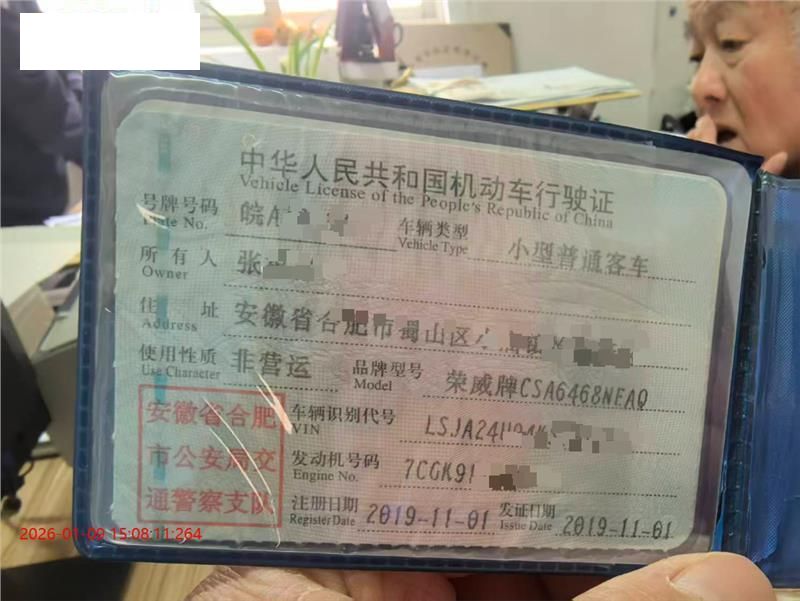 中华人民共和国机动车行驶证
Vehicle License of the People's Republic of China
号牌号码 皖A 车辆类型 小型普通客车
Plate No. Vehicle Type
所有人 张
Owner
住址 安徽省合肥市蜀山区
Address
使用性质 非营运 品牌型号 荣威牌CSA6468NEAQ
Use Character Model
安徽省合肥 车辆识别代号 LSJA24
市公安局交 VIN
通警察支队 发动机号码 7CGK91
Engine No.
注册日期 2019-11-01 发证日期 2019-11-01
Register Date Issue Date
2026-01-09 15:08:11:264